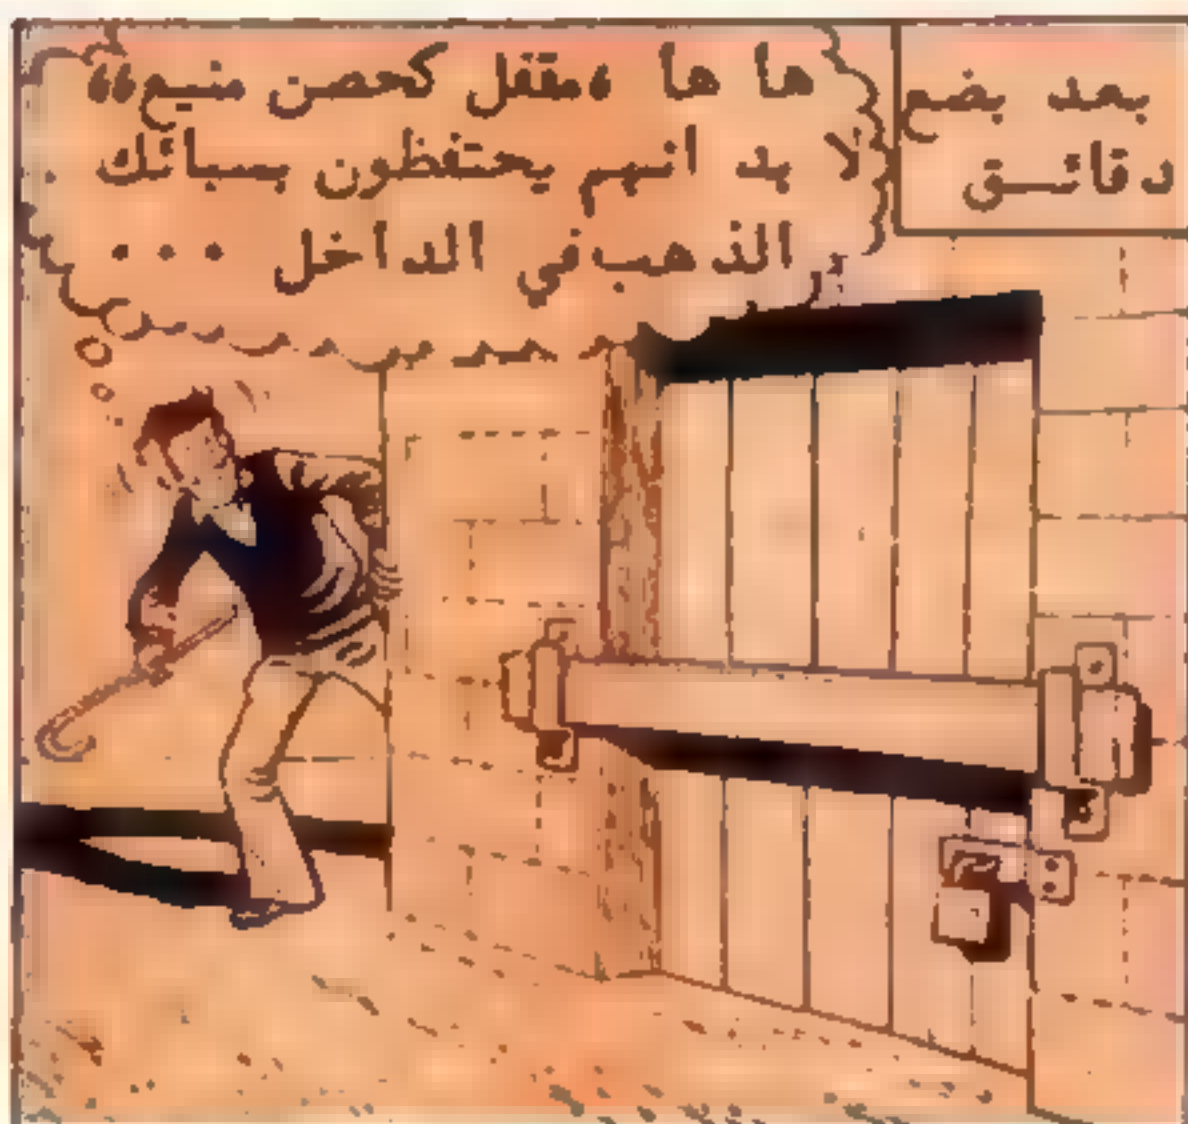 بعد بضع
دقائق
ها ها ،مقفل كحصن منيع،،
لا بد انهم يحتفظون بسبائك
الذهب في الداخل ...